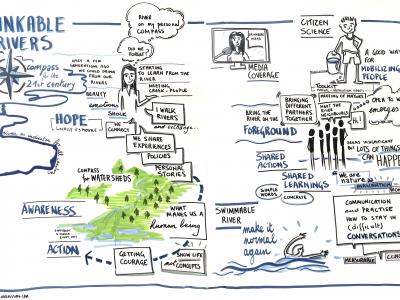 INKABLE
RIVERS
RIVER
on my personal
COMPASS
DID WE
FORGET
compass
for the
21st century
ONLY A FEW
GENERATIONS AGO
WE COULD DRINK
FROM OUR
RIVERS
STARTING
TO LEARN FROM
THE RIVER
MEETING
PEOPLE
BEAUTY
emotions
SMOLK
I WALK
RIVERS
and exchange...
HOPE
WE CONNECT
WE SHARE
EXPERIENCES
POLICIES
PERSONAL
STORIES
COMPASS
for WATERSHEDS
AWARENESS
WHAT
MAKES US A
human being
ACTION
GETTING
COURAGE
SHOW LIFE
and CONCEPTS
MEDIA
COVERAGE
CITIZEN
SCIENCE
A GOOD WAY
FOR
MOBILIZING
PEOPLE
TOOLKIT
MEETING OF MAYORS
BRINGING
DIFFERENT
PARTNERS
TOGETHER
MEET THE
RIVER
NEIGHBOURS
Hi!
OPEN TO W
emerges
BRING THE
RIVER ON THE
FOREGROUND
SEEMS INSIGNIFICANT
BUT LOTS OF THINGS
CAN HAPPEN
SHARED
ACTIONS
SHARED
LEARNINGS
SIMPLE
WORDS
CONCRETE
We are
nature
IMAGINATION
SWIMMABLE
RIVER
make it
normal
again
COMMUNICATION
and PRACTISE
HOW TO STAY IN
(difficult)
CONVERSATIONS
MEASURABLE
CONC